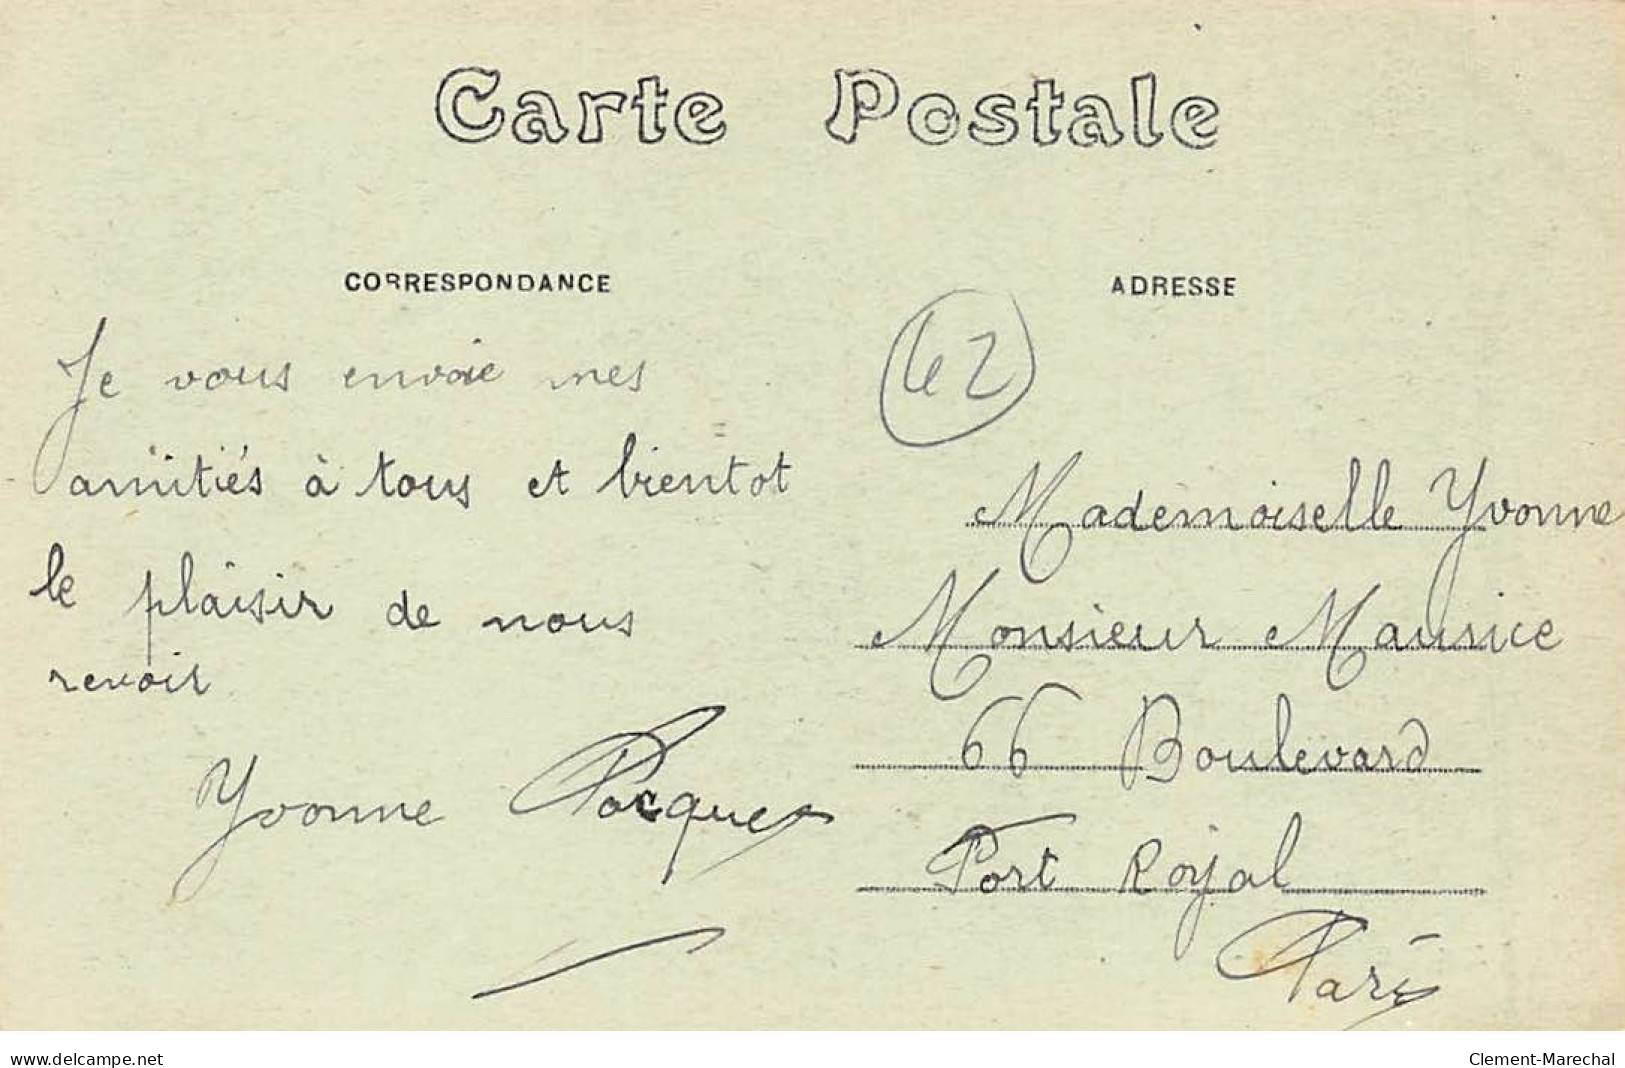 Carte Postale
CORRESPONDANCE
Je vous envoie mes
amitiés à tous et bientot
le plaisir de nous
revoir
Yvonne Pacques
ADRESSE
42
Mademoiselle Yvonne
Monsieur Maurice
66 Boulevard
Port Royal
Paris
www.delcampe.net
Clement-Marechal